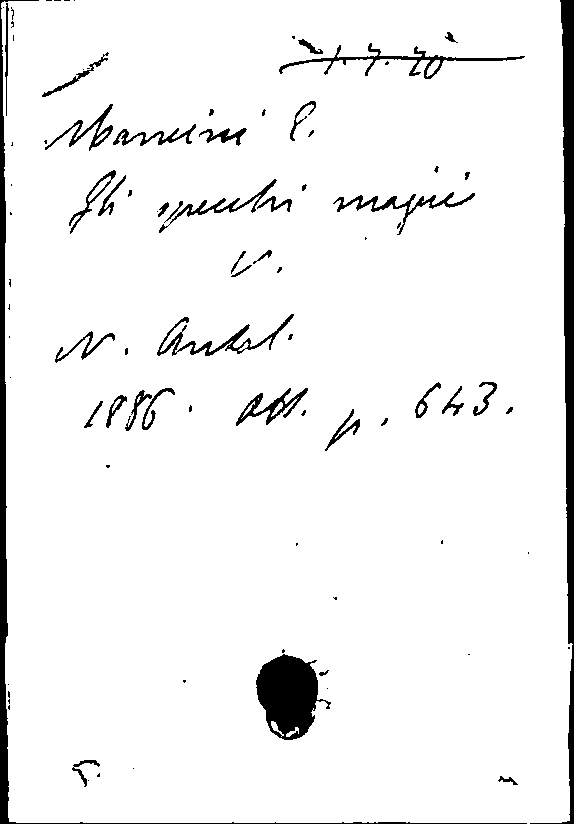 1.7.70
Mancini E.
Gli specchi magici
V.
N. Antol.
1886. Ott. p. 643.